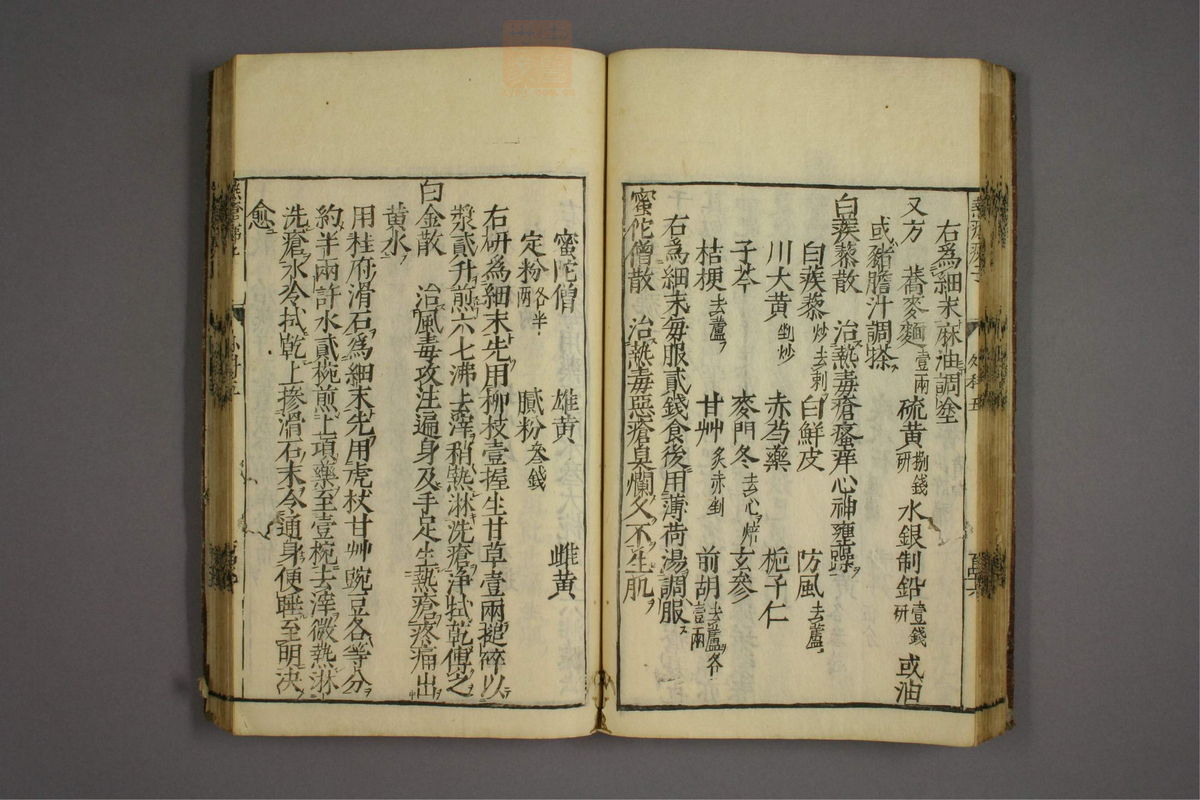 右爲細末麻油調塗
又方 蕎麥麵壹兩 硫黄捌錢研 水銀制鉛壹錢研 或油
或猪膽汁調搽ス
白蒺藜散 治熱毒瘡瘙痒心神壅躁
白蒺藜炒去刺 白鮮皮 防風去蘆
川大黄剉炒 赤芍藥 梔子仁
子芩 麥門冬去心焙 玄參
桔梗去蘆 甘艸炙赤剉 前胡去蘆各壹兩
右爲細末毎服貳錢食後用薄荷湯調服ス
蜜陀僧散 治熱毒惡瘡臭爛久不生肌
蜜陀僧 雄黄 雌黄
定粉各半兩 膩粉叁錢
右研爲細末先用柳枝壹握生甘草壹兩搥碎以
漿貳升煎六七沸去滓稍熱淋洗瘡淨拭乾傅之
白金散 治風毒攻注遍身及手足生熱瘡疼痛出
黄水
用桂府滑石爲細末先用虎杖甘艸豌豆各等分
約半兩許水貳椀煎上項藥至壹椀去滓微熱淋
洗瘡水冷拭乾上摻滑石末令通身便睡至明決
愈